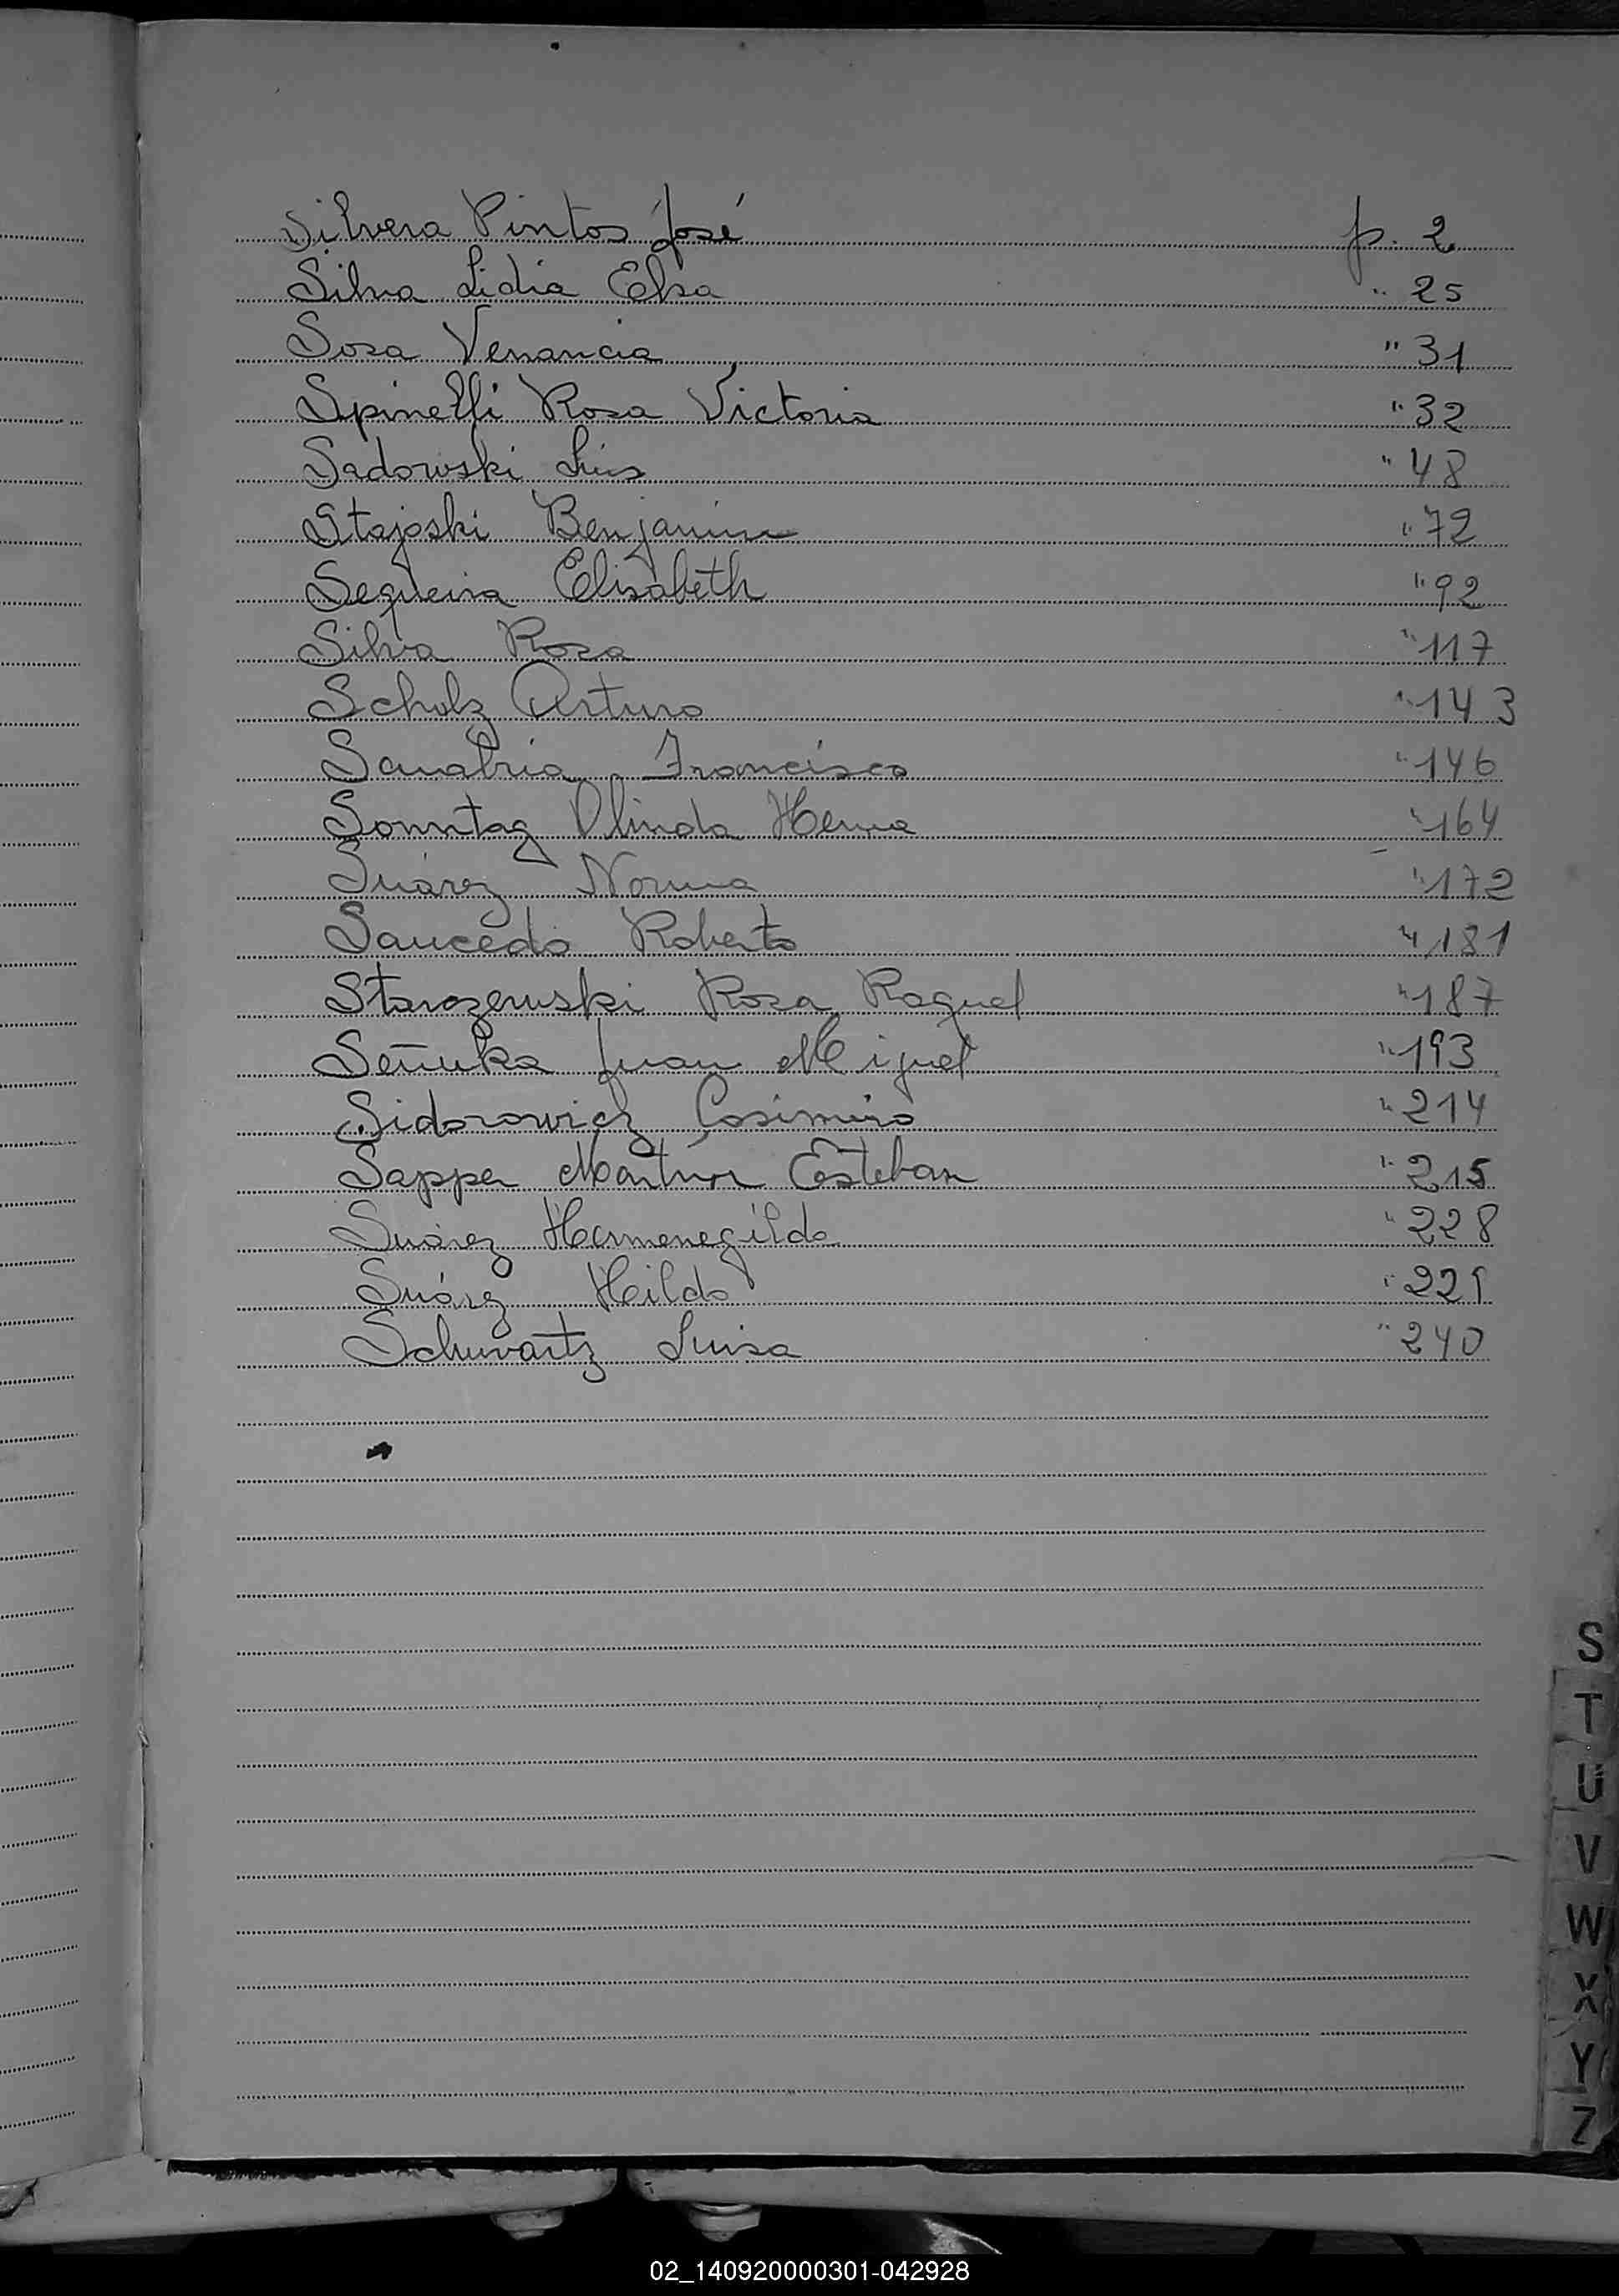 Silvera Pintos José p. 2
Silva Lidia Elsa " 25
Sosa Venancia " 31
Spinelli Rosa Victoria " 32
Sadowski Luis " 48
Stajoski Benjamin " 72
Sequeira Elisabeth " 92
Silva Rosa " 117
Scholz Arturo " 143
Sanabria Francisco " 146
Sonntag Olinda Herma " 164
Suárez Norma " 172
Saucedo Roberto " 181
Starozewski Rosa Raquel " 187
Señuka Juan Miguel " 193
Sidorowicz Casimiro " 214
Sapper Martin Esteban " 215
Suárez Hermenegildo " 228
Suárez Hilda " 229
Schuvartz Luisa " 240
S
T
U
V
W
X
Y
Z
02_140920000301-042928